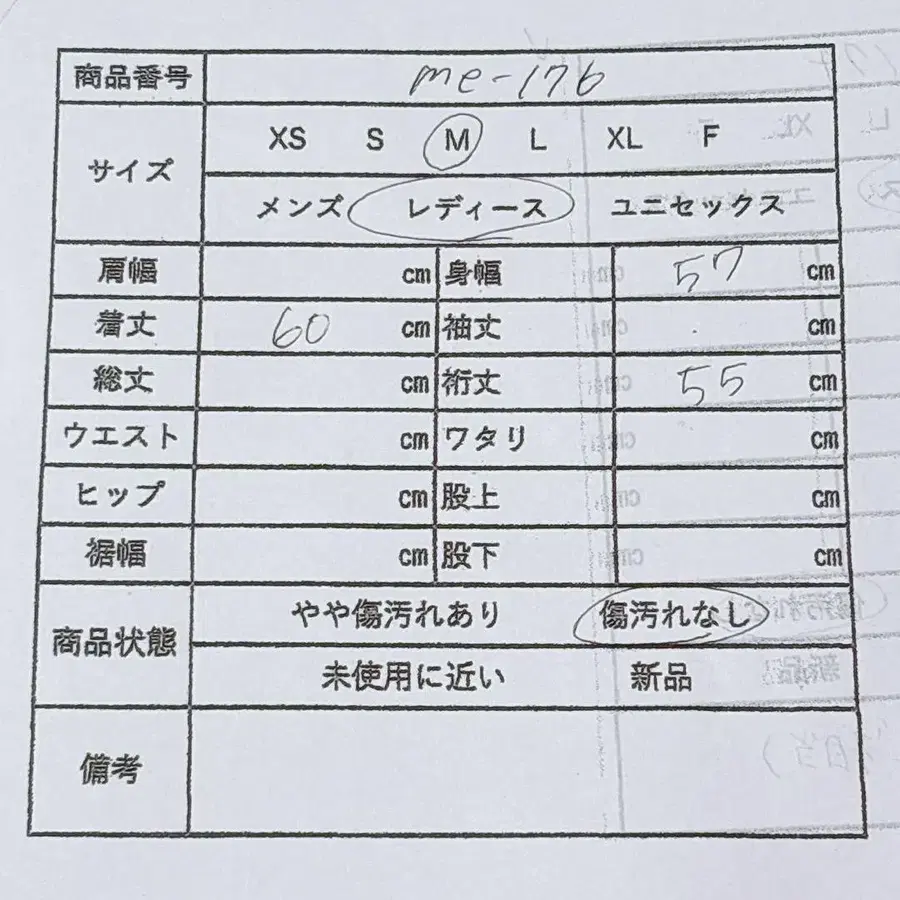 商品番号 me-176
サイズ XS S M L XL F
メンズ レディース ユニセックス
肩幅 cm 身幅 57 cm
着丈 60 cm 袖丈 cm
総丈 cm 裄丈 55 cm
ウエスト cm ワタリ cm
ヒップ cm 股上 cm
裾幅 cm 股下 cm
商品状態 やや傷汚れあり 傷汚れなし
未使用に近い 新品
備考